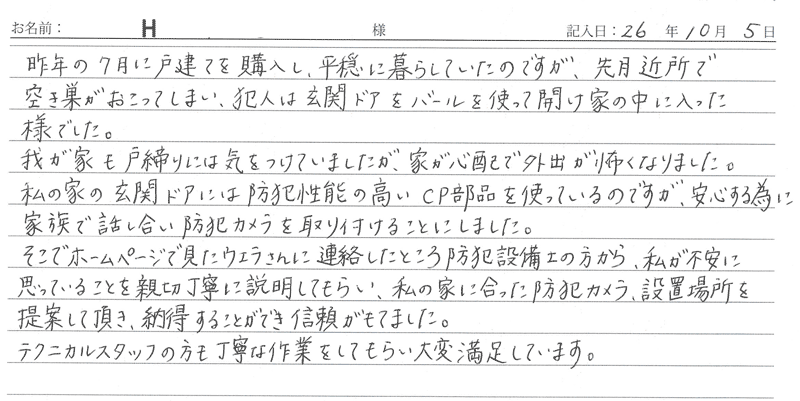 お名前： H 様 記入日：26 年 10 月 5 日
昨年の7月に戸建てを購入し、平穏に暮らしていたのですが、先月近所で
空き巣がおこってしまい、犯人は玄関ドアをバールを使って開け家の中に入った
様でした。
我が家も戸締りには気をつけていましたが、家が心配で外出が怖くなりました。
私の家の玄関ドアには防犯性能の高いCP部品を使っているのですが、安心する為に
家族で話し合い防犯カメラを取り付けることにしました。
そこでホームページで見たウエラさんに連絡したところ防犯設備士の方から、私が不安に
思っていることを親切丁寧に説明してもらい、私の家に合った防犯カメラ、設置場所を
提案して頂き、納得することができ信頼がもてました。
テクニカルスタッフの方も丁寧な作業をしてもらい大変満足しています。